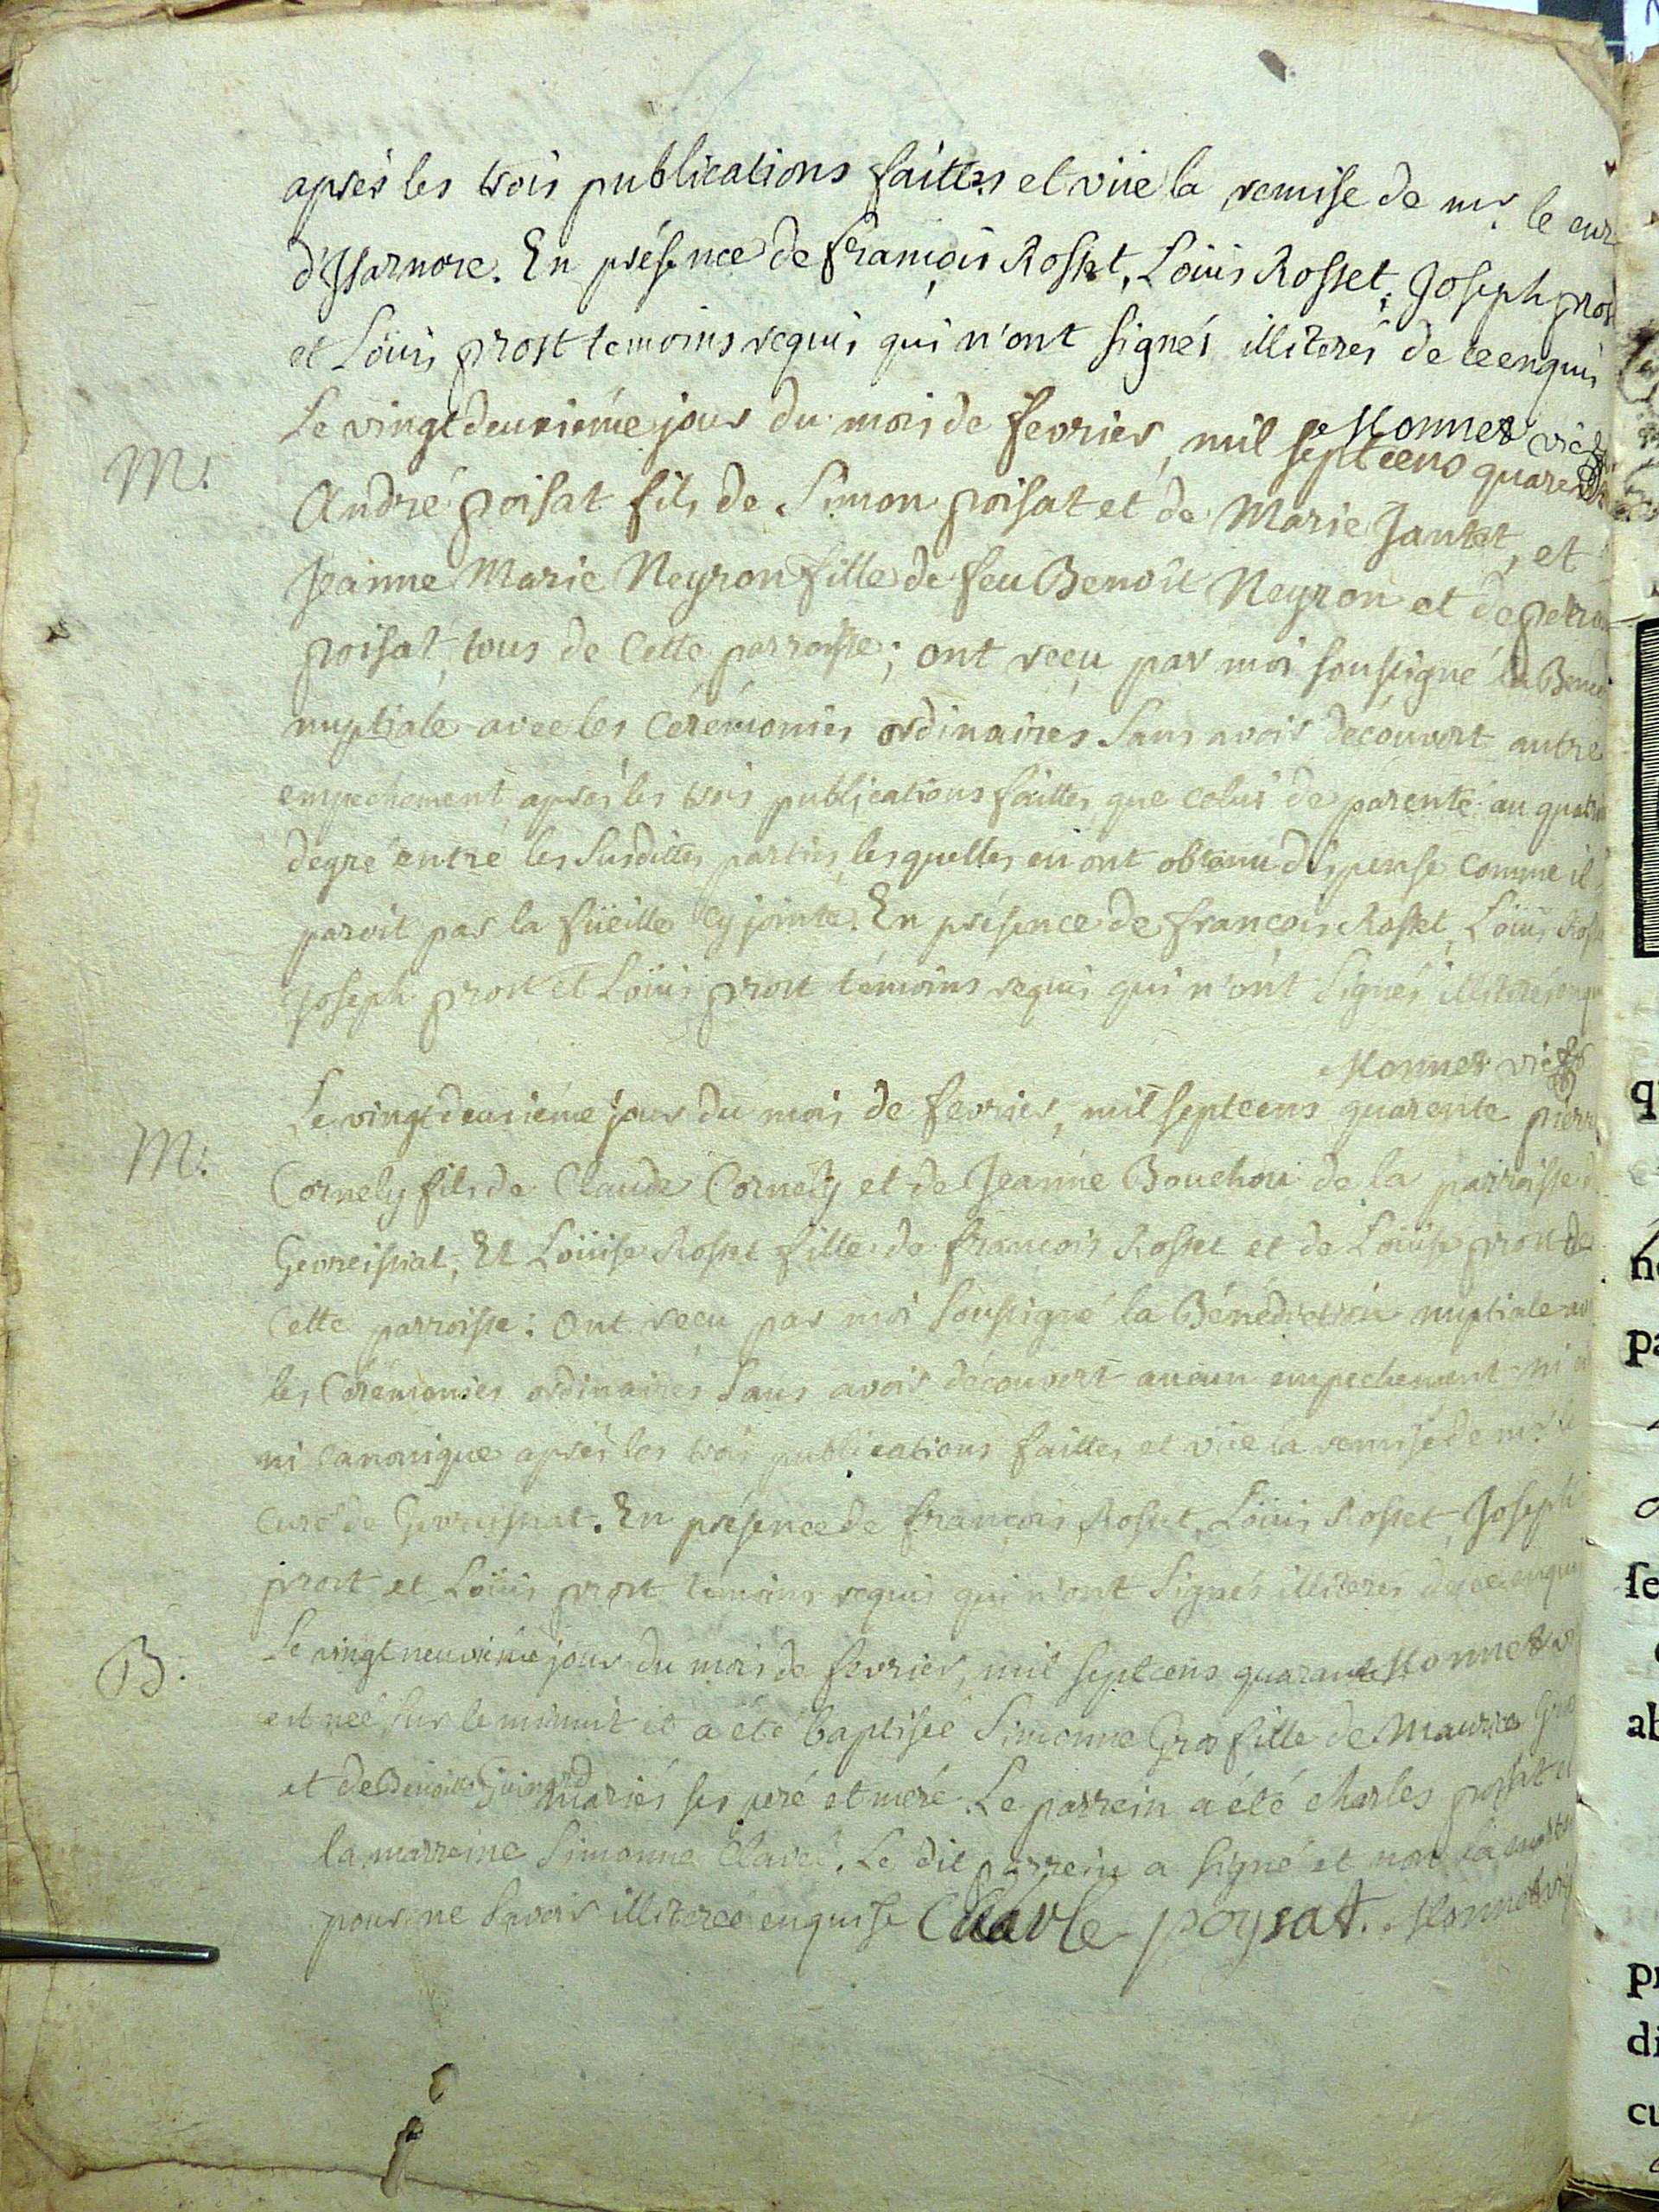 après les trois publications faittes et vüe la remise de mr. le cur
d'Isarnore. En présence de françois Rosset, Loüis Rosset, Joseph pros
et Loüis prost temoins requis qui n'ont signés illiterés de ce enquis
Monnet vic
M. Le vingtdeuxiéme jour du mois de fevrier, mil septcens quarente
André poisat fils de Simon poisat et de Marie Jantet, et
Jeanne Marie Neyron fille de feu Benoît Neyron et de
poisat, tous de Cette parroisse; ont reçu par moi soussigné la Bened
nuptiale avec les Cérémonies ordinaires Sans avoir découvert autre
empechement après les trois publications faittes, que celui de parenté au quatri
degré entre les Susdittes parties, lesquelles en ont obtenu dispense comme il
paroit par la füeille cy jointe. En présence de françois Rosset, Loüis Ross
Joseph prost et Loüis prost témoins requis qui n'ont Signés illiterés enqu
Monnet vic
M. Le vingtdeuxiéme jour du mois de fevrier, mil septcens quarente pierre
Cornely fils de Claude Cornely et de Jeanne Bouchou de la parroisse d
Gevreissiat, Et Loüise Rosset fille de françois Rosset et de Loüise prost de
Cette parroisse: Ont reçu par moi Soussigné la Bénédiction nuptiale av
les Cérémonies ordinaires Sans avoir découvert aucun empechement ni
ni canonique après les trois publications faittes et vüe la remise de mr. le
Curé de Gevreissiat. En présence de françois Rosset, Loüis Rosset, Joseph
prost et Loüis prost temoins requis qui n'ont Signés illiterés de ce enqui
Monnet v
B. Le vingt neuviéme jour du mois de fevrier, mil septcens quarante
est née sur le minuit et a été baptisée Simonne Gras fille de Maurice Gra
et de Benoitte Guinard mariés ses pere et mere. Le parrein a été charles poisat et
la marreine Simonne Clavel. Le dit parrein a signé et non la marre
pour ne Savoir illiterée enquise Charle poysat. Monnet vic